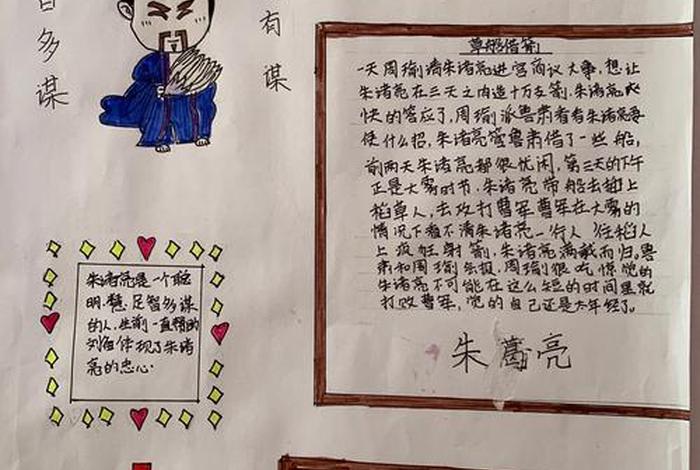 百多谋
有谋
草船借箭
一天周瑜请朱诸亮进宫商议大事，想让
朱诸亮在三天之内造十万支箭，朱诸亮爽
快的答应了，周瑜派鲁肃看看朱诸亮要
使什么招，朱诸亮管鲁肃借了一些船，
前两天朱诸亮都很忧闲，第三天的下午
正是大雾时节，朱诸亮带船去
稻草人，去攻打曹军曹军在大雾的
情况下看不清朱诸亮一行人
上疯狂射箭，朱诸亮满载而归。鲁
肃和周瑜，周瑜很吃惊觉的
朱诸亮不可能在这么短的时间里就
打败曹军，觉的自己还是太年轻了。
朱葛亮
朱诸亮是一个聪
明、慧、足智多谋
的人，生前一直辅助
刘备体现了朱诸
亮的忠心.